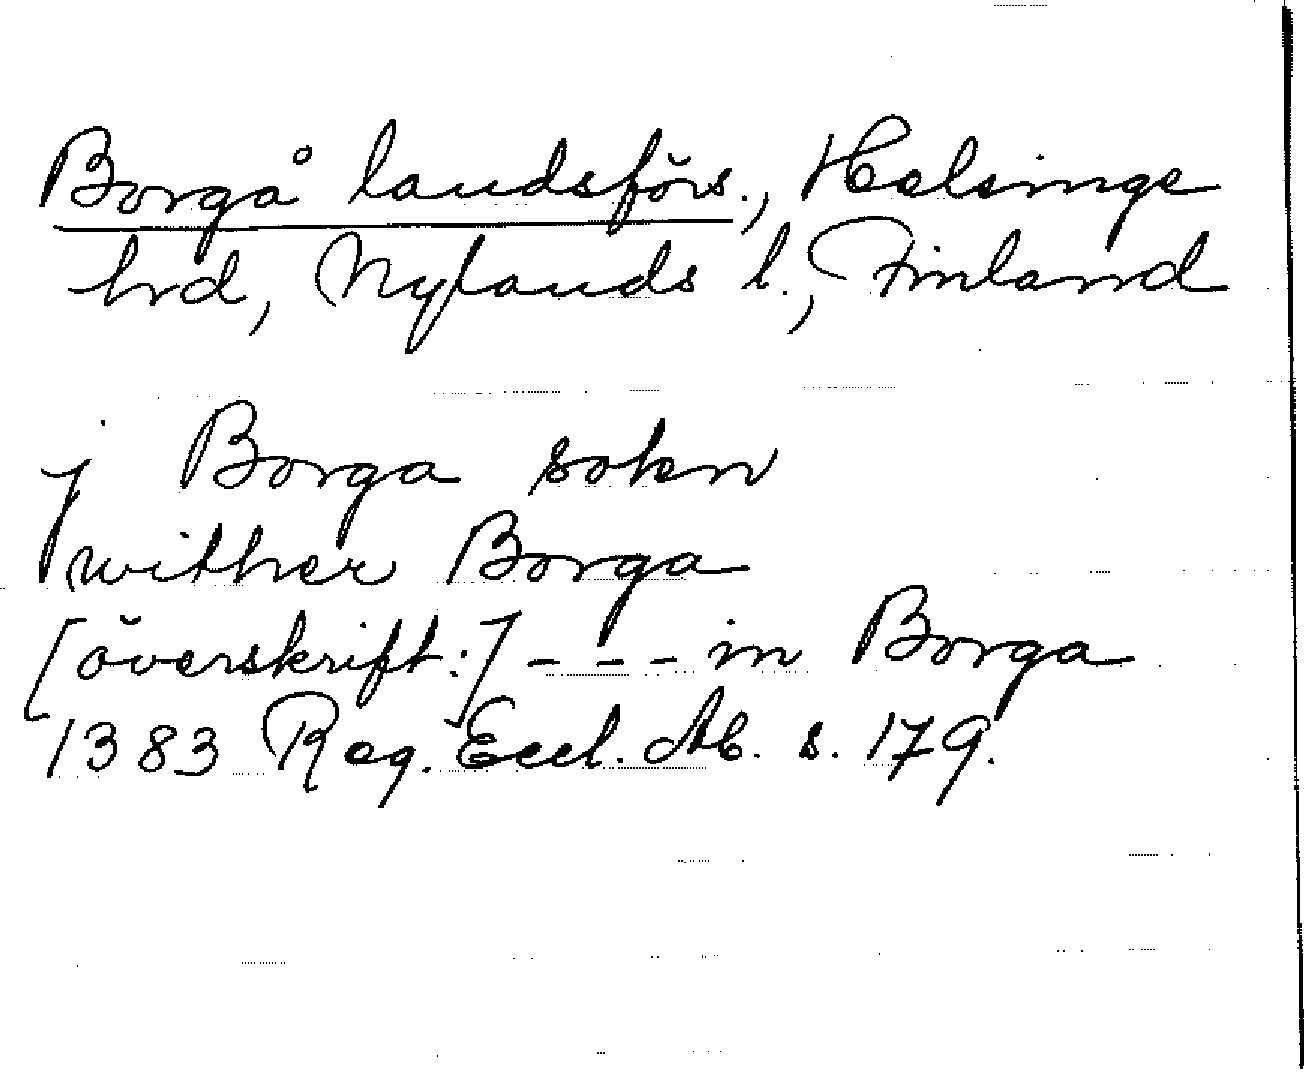 Borgå landsförs., Helsinge
hrd, Nylands l., Finland
j Borga sokn
wither Borga
[överskrift:] - - - in Borga
1383 Reg. Eccl. Ab. s. 179.